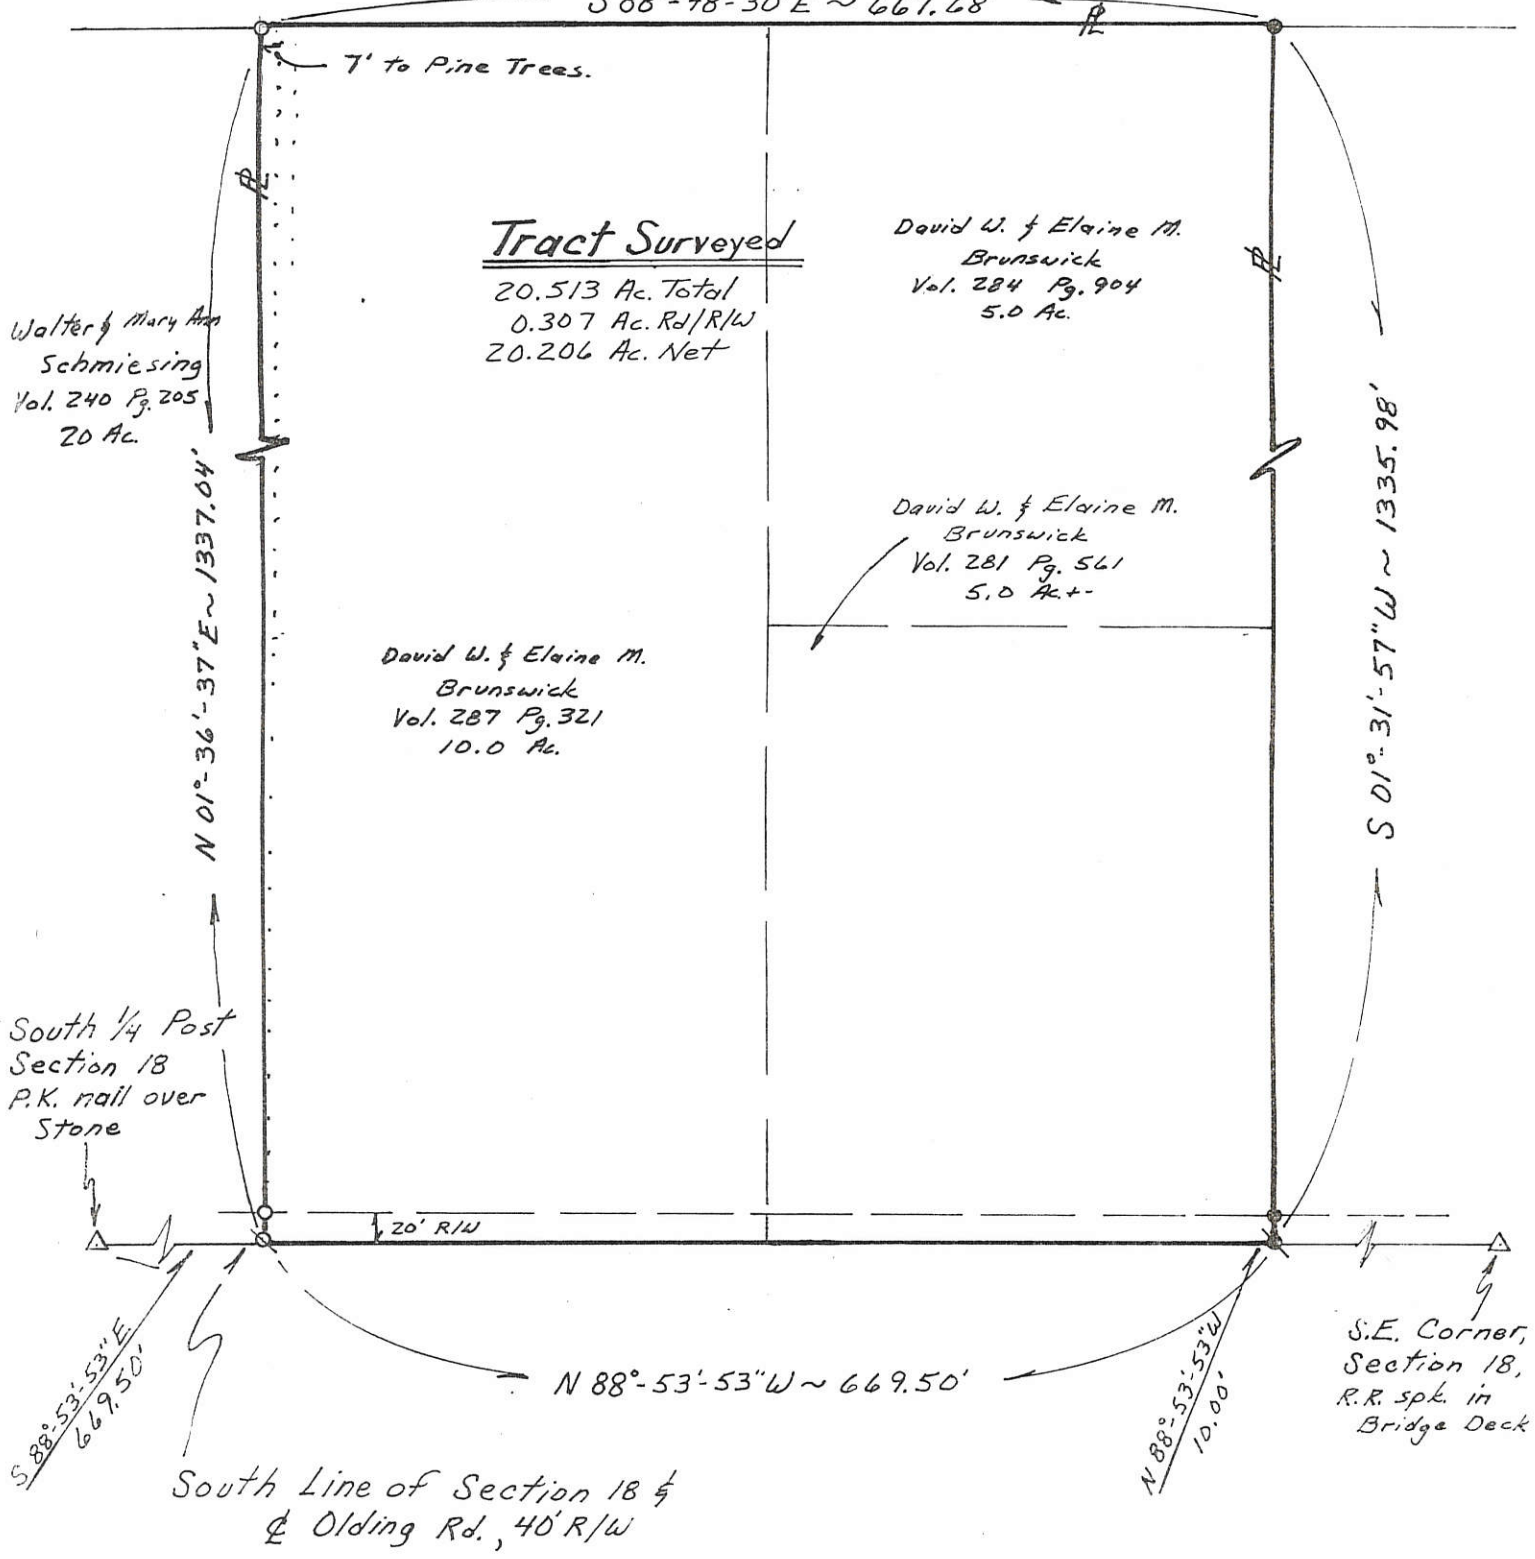 S 88°-48'-30"E ~ 667.68'
PL
7' to Pine Trees.
PL
Tract Surveyed
20.513 Ac. Total
0.307 Ac. Rd/R/W
20.206 Ac. Net
David W. & Elaine M.
Brunswick
Vol. 284 Pg. 904
5.0 Ac.
PL
Walter & Mary Ann
Schmiesing
Vol. 240 Pg. 205
20 Ac.
N 01°-36'-37"E ~ 1337.04'
S 01°-31'-57"W ~ 1335.98'
David W. & Elaine M.
Brunswick
Vol. 281 Pg. 561
5.0 Ac.+-
David W. & Elaine M.
Brunswick
Vol. 287 Pg. 321
10.0 Ac.
South 1/4 Post
Section 18
P.K. nail over
Stone
20' R/W
S 88°-53'-53"E
669.50'
N 88°-53'-53"W ~ 669.50'
N 88°-53'-53"W
10.00'
S.E. Corner,
Section 18,
R.R. spk. in
Bridge Deck
South Line of Section 18 &
℄ Olding Rd., 40' R/W